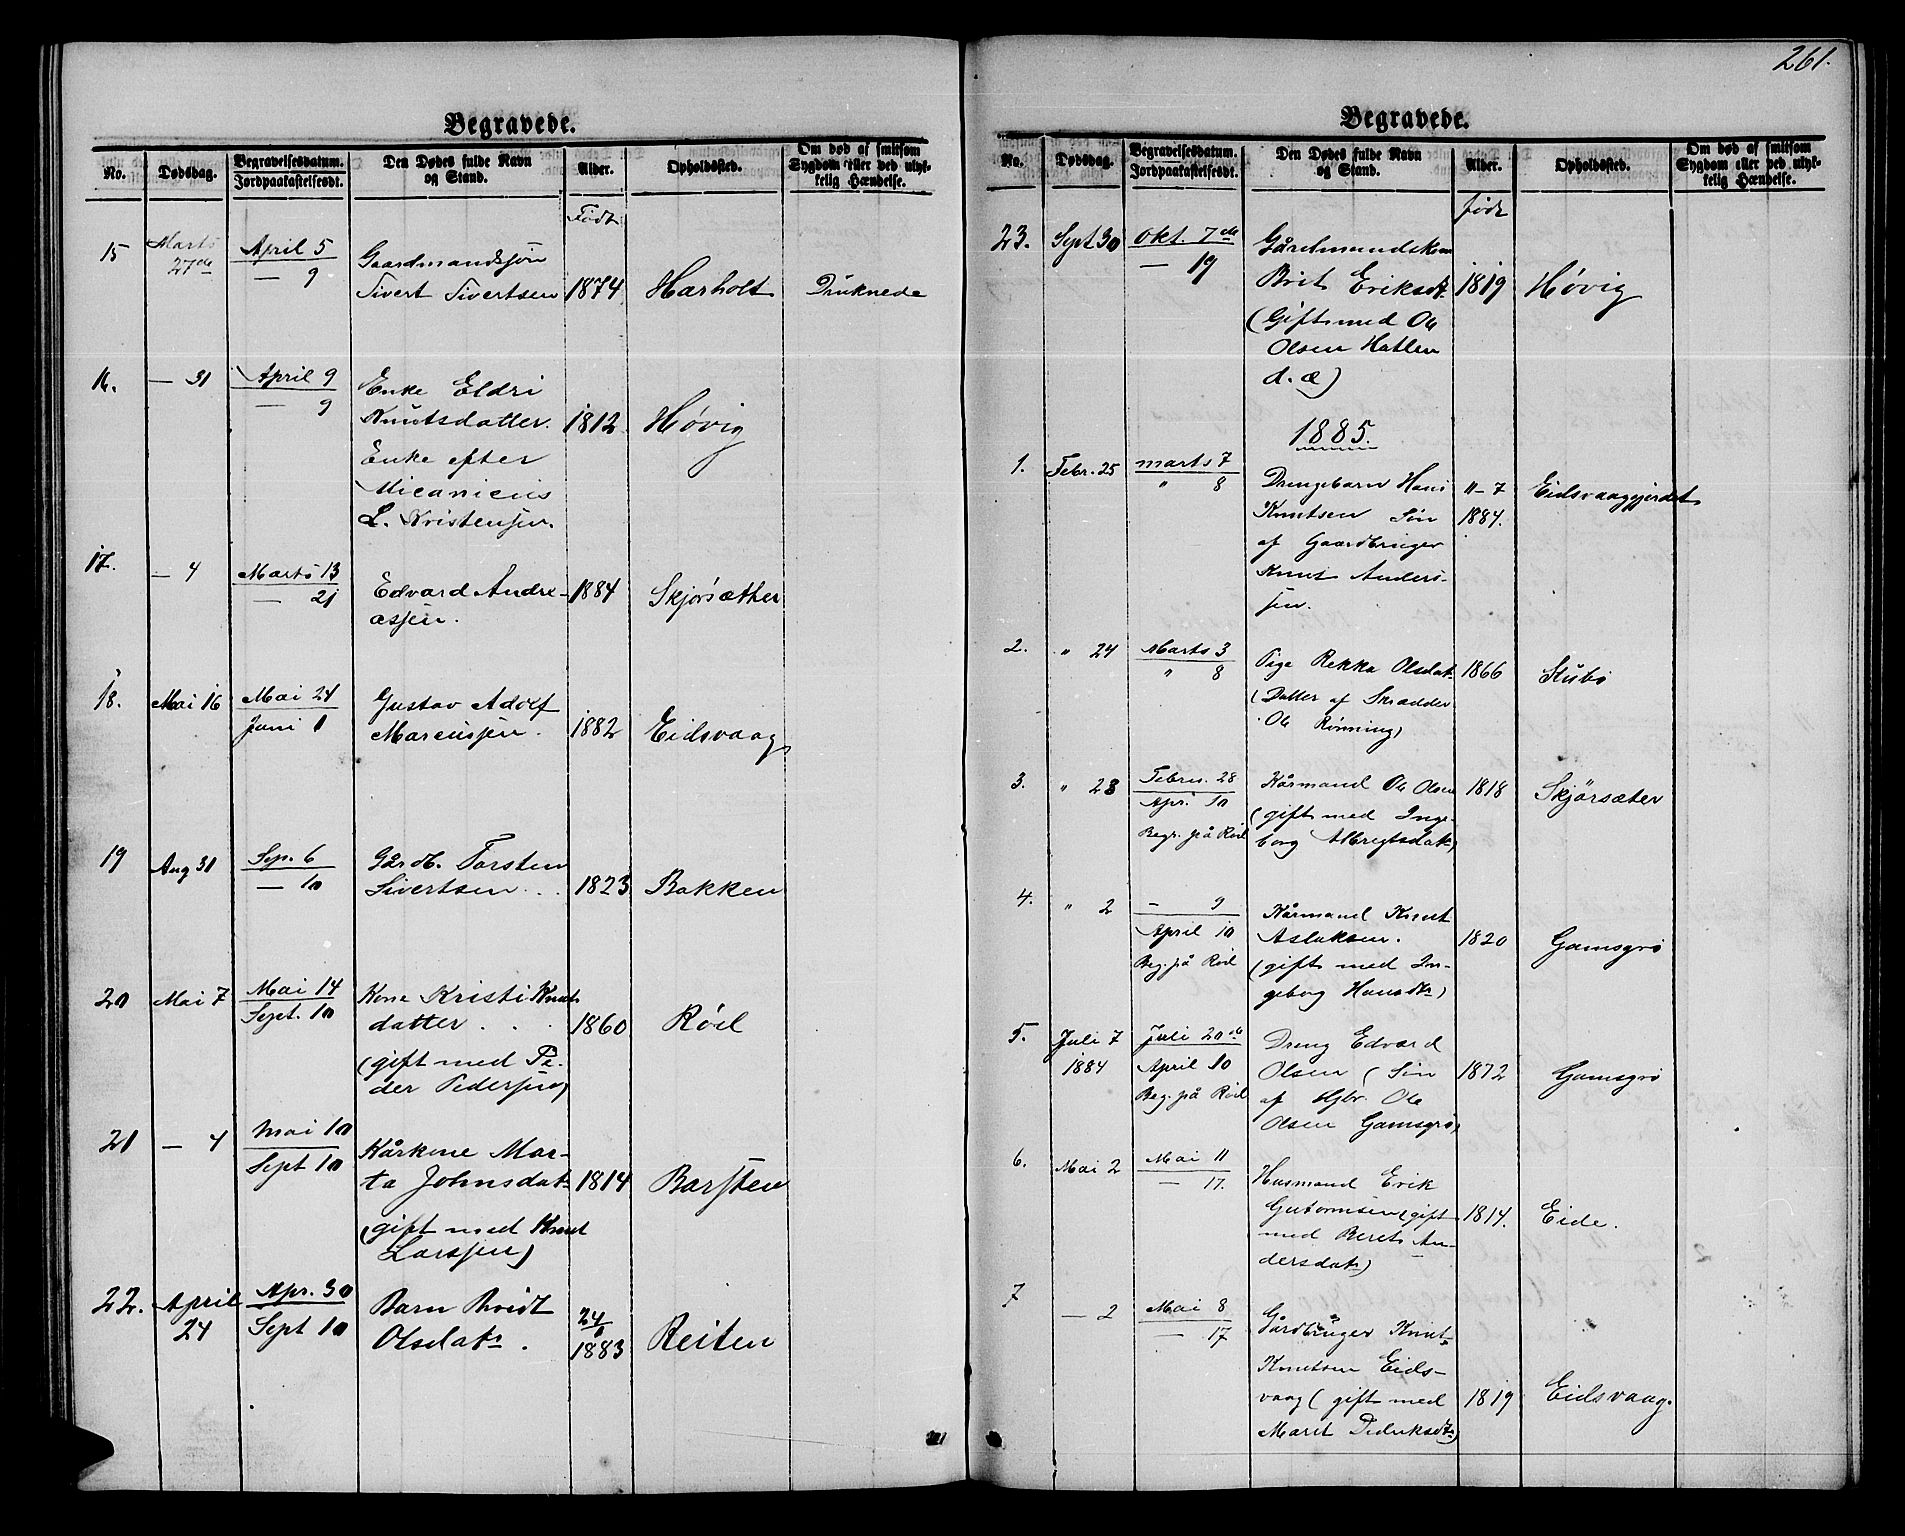 261.
Begravede.
No.
Dødsdag.
Begravelsesdatum.
Jordpaakastelsesdt.
Den Dødes fulde Navn
og Stand.
Alder.
Opholdssted.
Om død af smitsom
Sygdom eller ved ulyk-
kelig Hændelse.
Født
15
Marts
27de
April 5
— 9
Gaardmandssøn
Sivert Sivertsen
1874
Harholt
Druknede
16.
— 31
April 9
— 9
Enke Eldri
Knutsdatter.
Enke efter
L. Kristensen.
1812
Høvig
17.
— 4
Marts 13
— 21
Edvard Andre-
assen.
1884
Skjørsæther
18.
Mai 16
Mai 24
Juni 1
Gustav Adolf
Marcussen.
1882
Eidsvaag
19
Aug 31
Sep. 6
— 10
Gårdb. Torsten
Sivertsen . .
1823
Bakken
20
Mai 7
Mai 14
Sept. 10
Kone Kristi Knuts
datter . . .
(gift med Pe-
der Pedersen)
1860
Røil
21
— 4
Mai 10
Sept 10
Kårkone Mar-
ta Johnsdat.
(gift med Knut
Larssen)
1814
Barsten
22.
April
24
Apr. 30
Sept 10
Barn Broidt
Olsdatr .
24
1883
Reiten
Begravede.
No.
Dødsdag.
Begravelsesdatum.
Jordpaakastelsesdt.
Den Dødes fulde Navn
og Stand.
Alder.
Opholdssted.
Om død af smitsom
Sygdom eller ved ulyk-
kelig Hændelse.
født
23.
Sept 30
Okt. 7de
— 19
Gårdmandskone
Brit Eriksdt.
(Gift med Ole
Olsen Hatlen
d. æ)
1819
Høvig
1885.
1.
Febr. 25
Marts 7
" 8
Drengebarn Hans
Knutsen Søn
af Gaardbruger
Knut Anders-
sen.
11-7
1884.
Eidsvaaggjerdet
2.
" 24
Marts 3
" 8
Pige Rekka Olsdat.
(Datter af Skrædder
Ole Rønning)
1866
Stubø
3.
" 23
Febru. 28
Apr. 10
Begr. på Röil
Kårmand Ole Olsen
(gift med Inge-
borg Albrigtsdatr)
1818
Skjörsæter
4.
" 2
— 9
April 10
Beg. på Röil
Kårmand Knut
Aslaksen.
(gift med In-
geborg Hansdtr)
1820
Gamsgrø
5.
Juli 7
1884
Juli 20de
April 10
Beg. på Röil
Dreng Edvard
Olsen (Søn
af Gbr. Ole
Olsen Gamsgrø)
1872
Gamsgrø
6.
Mai 2
Mai 11
— 17.
Husmand Erik
Gutormsen (gift
med Beret An-
dersdatr)
1814.
Eide.
7
— 2
Mai 8
— 17
Gårdbruger Knut
Knutsen Eids-
vaag (gift med
Marit Didriksdtr)
1819
Eidsvaag.